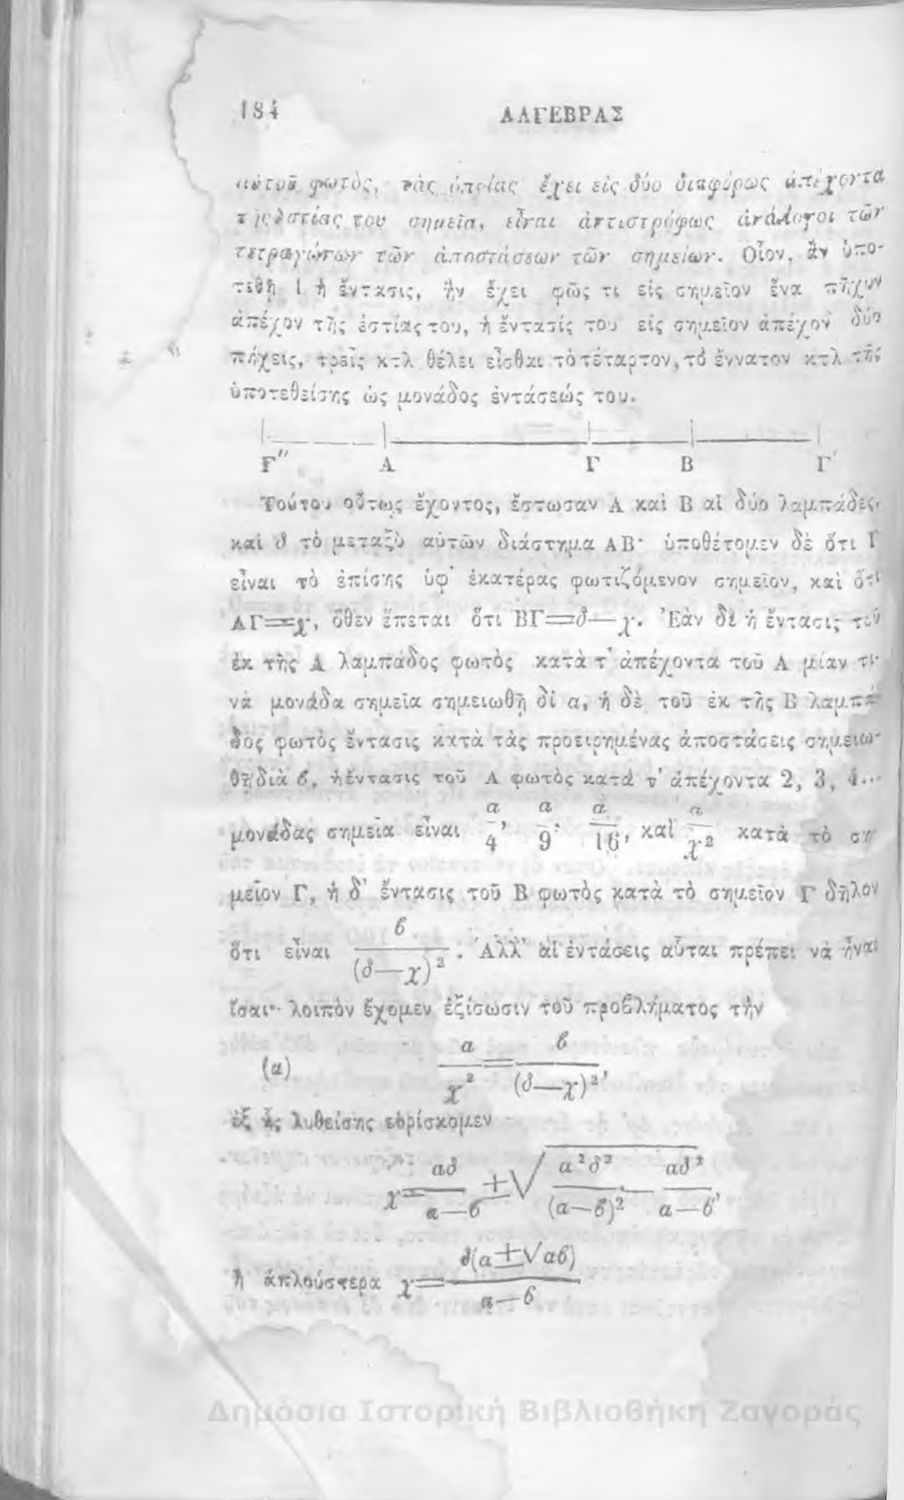 184 ΑΛΓΕΒΡΑΣ
αὐτοῦ φωτὸς, τὰς ὁποίας ἔχει εἰς δύο διαφόρως ἀπέχοντα
τῆς ἑστίας του σημεῖα, εἶναι ἀντιστρόφως ἀνάλογοι τῶν
τετραγώνων τῶν ἀποστάσεων τῶν σημείων. Οἷον, ἂν ὑπο-
τεθῇ 1 ἡ ἔντασις, ἣν ἔχει φῶς τι εἰς σημεῖον ἕνα πῆχυν
ἀπέχον τῆς ἑστίας του, ἡ ἔντασίς του εἰς σημεῖον ἀπέχον δύο
πήχεις, τρεῖς κτλ θέλει εἶσθαι τὸ τέταρτον, τὸ ἔννατον κτλ τῆς
ὑποτεθείσης ὡς μονάδος ἐντάσεώς του.
Γ″ Α Γ Β Γ′
Τούτου οὕτως ἔχοντος, ἔστωσαν Α καὶ Β αἱ δύο λαμπάδες,
καὶ δ τὸ μεταξὺ αὐτῶν διάστημα ΑΒ· ὑποθέτομεν δὲ ὅτι Γ
εἶναι τὸ ἐπίσης ὑφ' ἑκατέρας φωτιζόμενον σημεῖον, καὶ ὅτι
ΑΓ=χ, ὅθεν ἕπεται ὅτι ΒΓ=δ—χ. Ἐὰν δὲ ἡ ἔντασις τοῦ
ἐκ τῆς Α λαμπάδος φωτὸς κατὰ τ' ἀπέχοντα τοῦ Α μίαν τι-
νὰ μονάδα σημεῖα σημειωθῇ δι α, ἡ δὲ τοῦ ἐκ τῆς Β λαμπά-
δος φωτὸς ἔντασις κατὰ τὰς προειρημένας ἀποστάσεις σημειω-
θῇ διὰ ϐ, ἡ ἔντασις τοῦ Α φωτὸς κατὰ τ' ἀπέχοντα 2, 3, 4...
μονάδας σημεῖα εἶναι α/4, α/9, α/16, καὶ α/χ² κατὰ τὸ ση-
μεῖον Γ, ἡ δ' ἔντασις τοῦ Β φωτὸς κατὰ τὸ σημεῖον Γ δῆλον
ὅτι εἶναι ϐ/(δ—χ)². Ἀλλ' αἱ ἐντάσεις αὗται πρέπει νὰ ἦναι
ἴσαι· λοιπὸν ἔχομεν ἐξίσωσιν τοῦ προϐλήματος τὴν
(α) α/χ²=ϐ/(δ—χ)²,
ἐξ ἧς λυθείσης εὑρίσκομεν
χ=αδ/(α—ϐ)±√(α²δ²/(α—ϐ)²—αδ²/(α—ϐ)),
ἢ ἁπλούστερα χ=δ(α±√αϐ)/(α—ϐ)
Δημόσια Ιστορική Βιβλιοθήκη Ζαγοράς